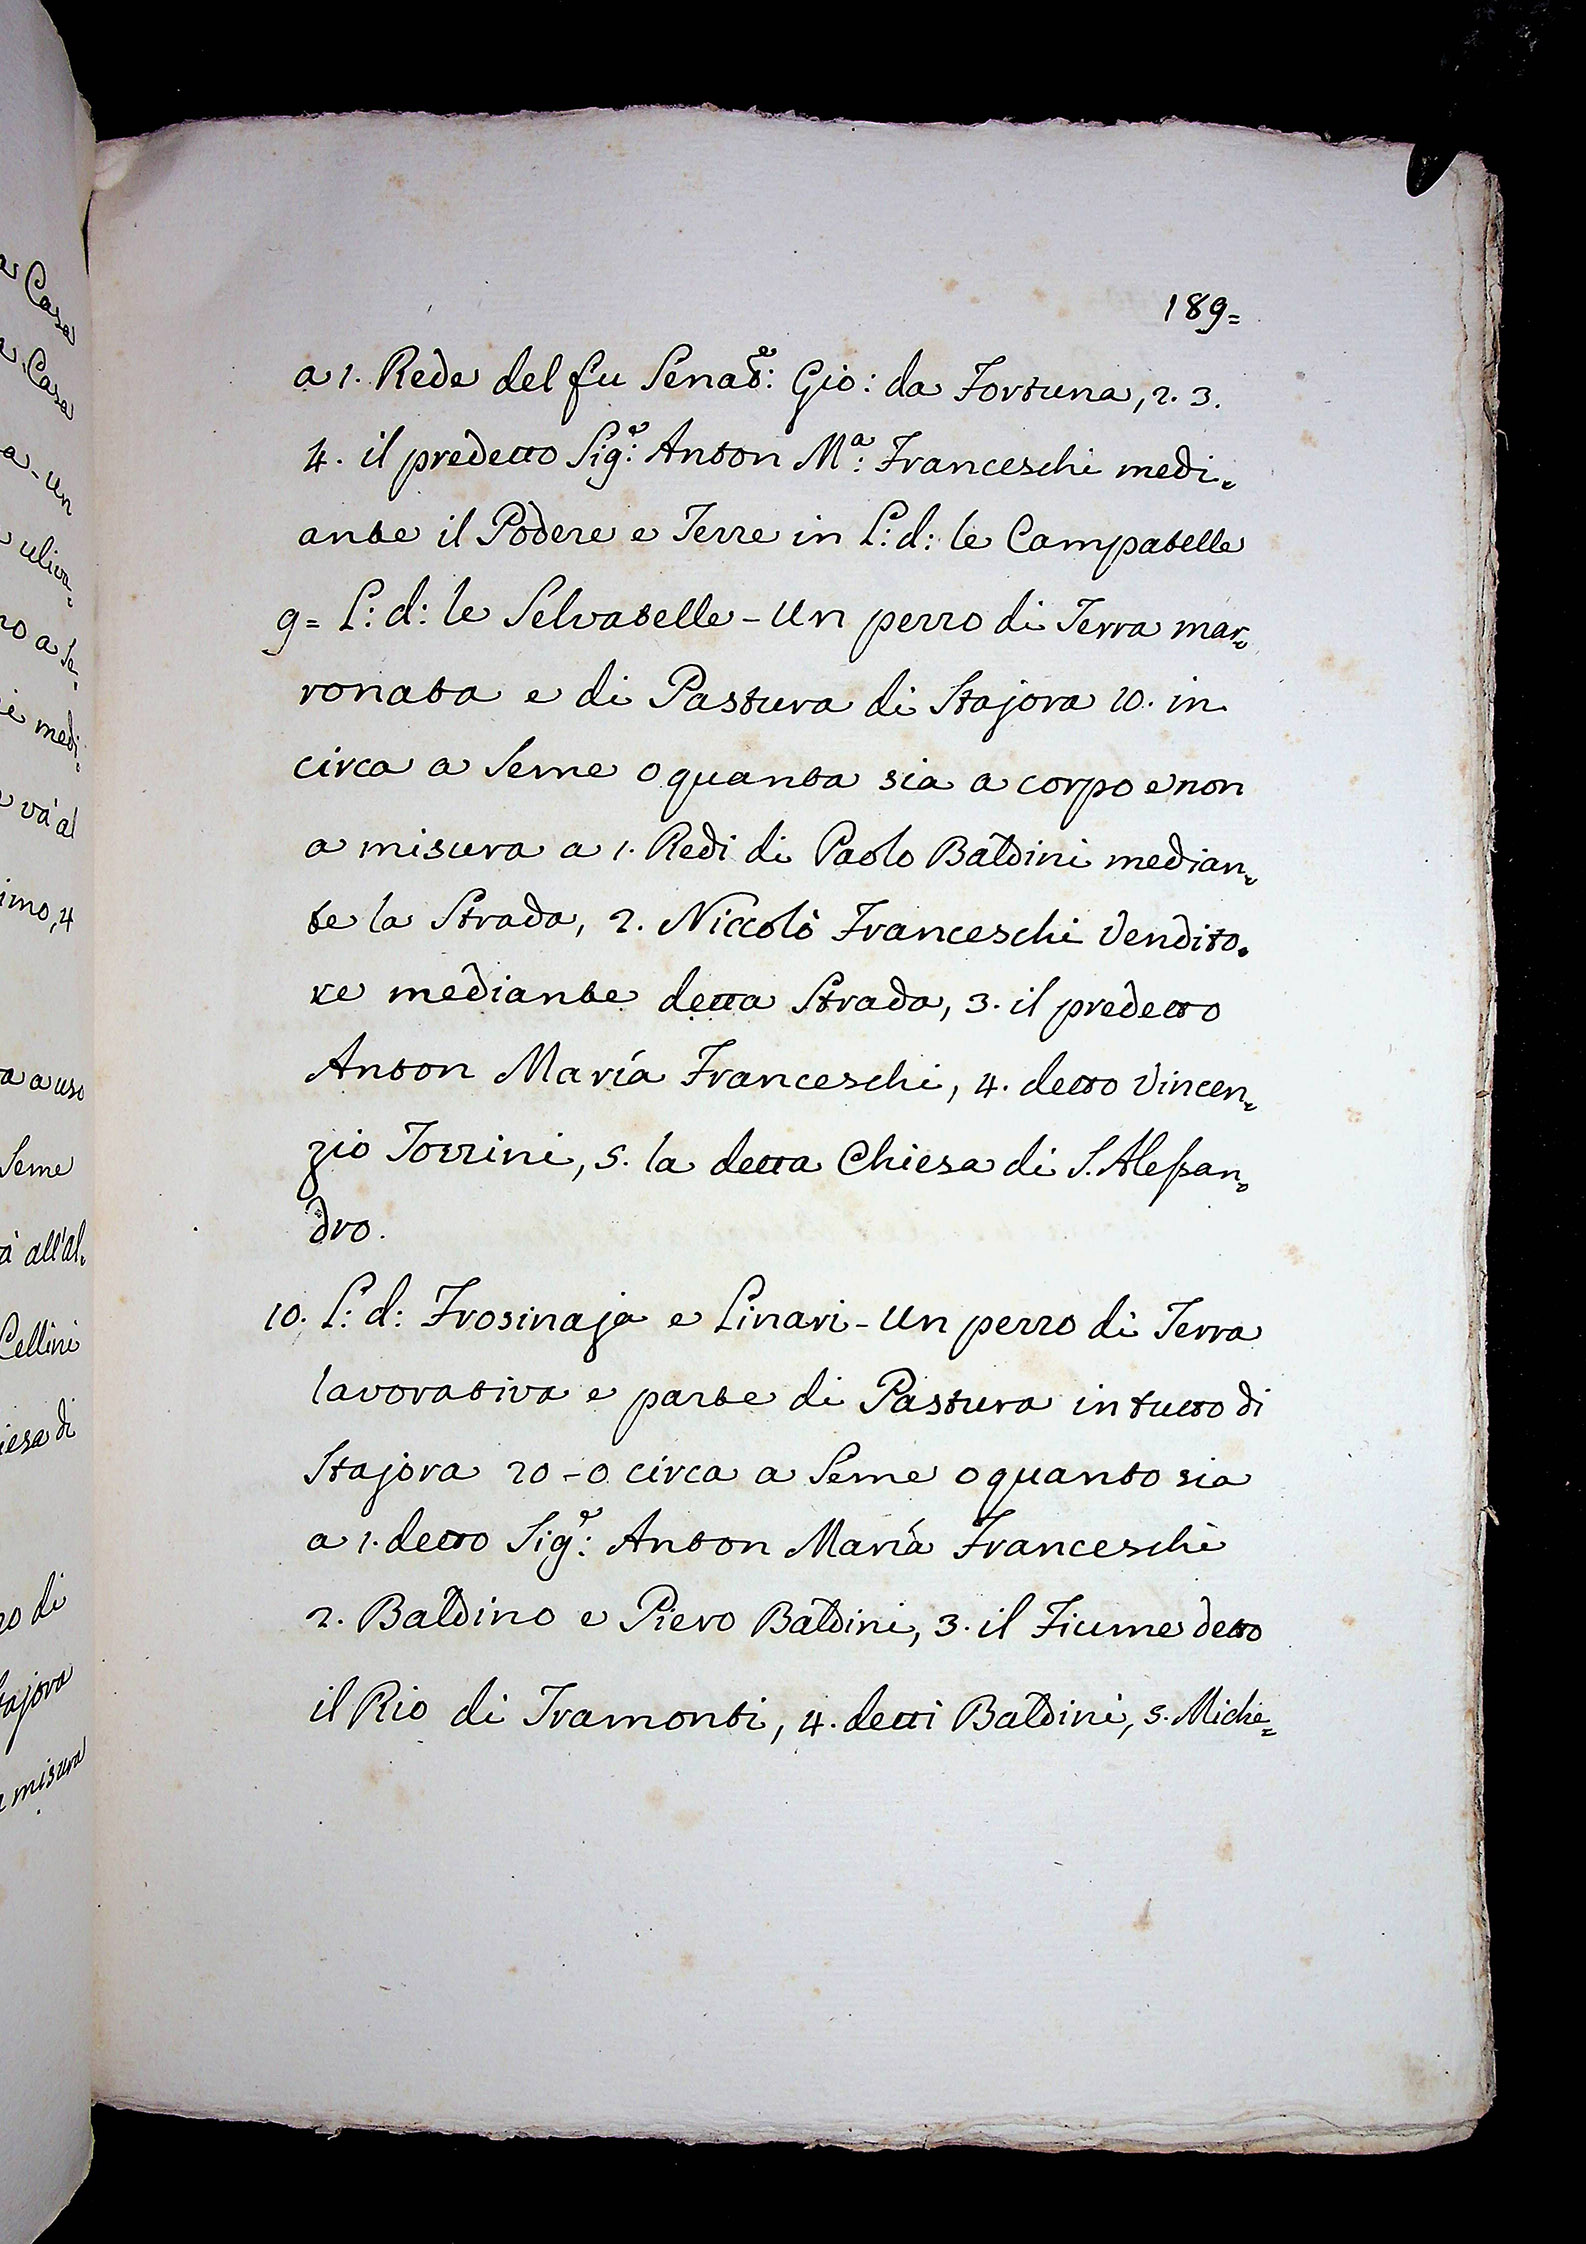 189=
a 1. Rede del fu Senat:e Gio: da Fortuna, 2. 3.
4. il predetto Sig:e Anton M:a Franceschi medi=
ante il Podere e Terre in L: d: le Campatelle
9= L: d: le Selvatelle - Un pezzo di Terra mar=
ronata e di Pastura di Stajora 10. in
circa a Seme o quanta sia a corpo e non
a misura a 1. Redi di Paolo Baldini median=
te la Strada, 2. Niccolò Franceschi Vendito=
re mediante detta Strada, 3. il predetto
Anton Maria Franceschi, 4. detto Vincen=
zio Torrini, 5. la detta Chiesa di S. Alessan=
dro.
10. L: d: Frosinaja e Linari - Un pezzo di Terra
lavorativa e parte di Pastura in tutto di
Stajora 20 - o circa a Seme o quanto sia
a 1. detto Sig:e Anton Maria Franceschi
2. Baldino e Piero Baldini, 3. il Fiume detto
il Rio di Tramonti, 4. detti Baldini, 5. Miche=
a Casa
a Casa
a - Un
uliva=
no a Se=
medi=
và al
imo, 4
a a uso
Seme
à all'al=
Cellini
iesa di
zo di
tajora
misura